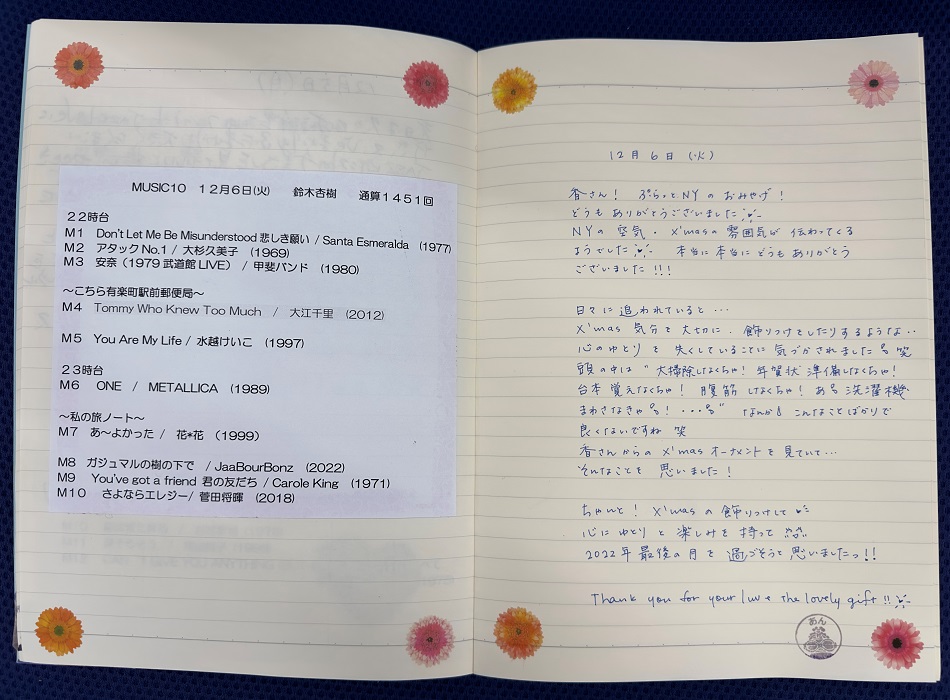 MUSIC10　１２月６日(火)　鈴木杏樹　通算１４５１回
２２時台
M１　Don't Let Me Be Misunderstood 悲しき願い / Santa Esmeralda　(1977)
M２　アタックNo.1 / 大杉久美子　(1969)
M３　安奈（1979 武道館LIVE） / 甲斐バンド　(1980)
～こちら有楽町駅前郵便局～
M４　Tommy Who Knew Too Much　/　大江千里　(2012)
M５　You Are My Life / 水越けいこ　(1997)
２３時台
M６　ONE　/　METALLICA　(1989)
～私の旅ノート～
M７　あ～よかった /　花*花　(1999)
M８　ガジュマルの樹の下で　/ JaaBourBonz　(2022)
M９　You've got a friend 君の友だち / Carole King　(1971)
M１０　さよならエレジー/ 菅田将暉　(2018)
12月6日（火）
香さん！ ぷらっとNYのおみやげ！
どうもありがとうございました
NYの空気・X'masの雰囲気が伝わってくる
ようでした 本当に本当にどうもありがとう
ございました!!!
日々に追われていると…
X'mas気分を大切に、飾りつけをしたりするような‥
心のゆとりを失くしていることに気づかされました 笑
頭の中は"大掃除しなくちゃ! 年賀状準備しなくちゃ!
台本覚えなくちゃ! 腹筋しなくちゃ! あ 洗濯機
まわさなきゃ ! ・・・ " なんか こんなことばかりで
良くないですね 笑
香さんからのX'masオーナメントを見ていて…
そんなことを思いました!
ちゃんと! X'masの飾りつけして
心にゆとりと楽しみを持って
2022年最後の月を過ごそうと思いましたっ!!
Thank you for your luv & the lovely gift!!
あん